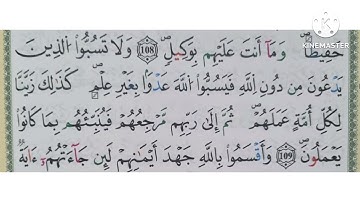 KINEMASTER
حَفِيظًاۖ وَمَآ أَنتَ عَلَيْهِم بِوَكِيلٍ ١٠٨ وَلَا تَسُبُّوا۟ ٱلَّذِينَ
يَدْعُونَ مِن دُونِ ٱللَّهِ فَيَسُبُّوا۟ ٱللَّهَ عَدْوًۢا بِغَيْرِ عِلْمٍۢ ۗ كَذَٰلِكَ زَيَّنَّا
لِكُلِّ أُمَّةٍ عَمَلَهُمْ ثُمَّ إِلَىٰ رَبِّهِم مَّرْجِعُهُمْ فَيُنَبِّئُهُم بِمَا كَانُوا۟
يَعْمَلُونَ ١٠٩ وَأَقْسَمُوا۟ بِٱللَّهِ جَهْدَ أَيْمَٰنِهِمْ لَئِن جَآءَتْهُمْ ءَايَةٌ